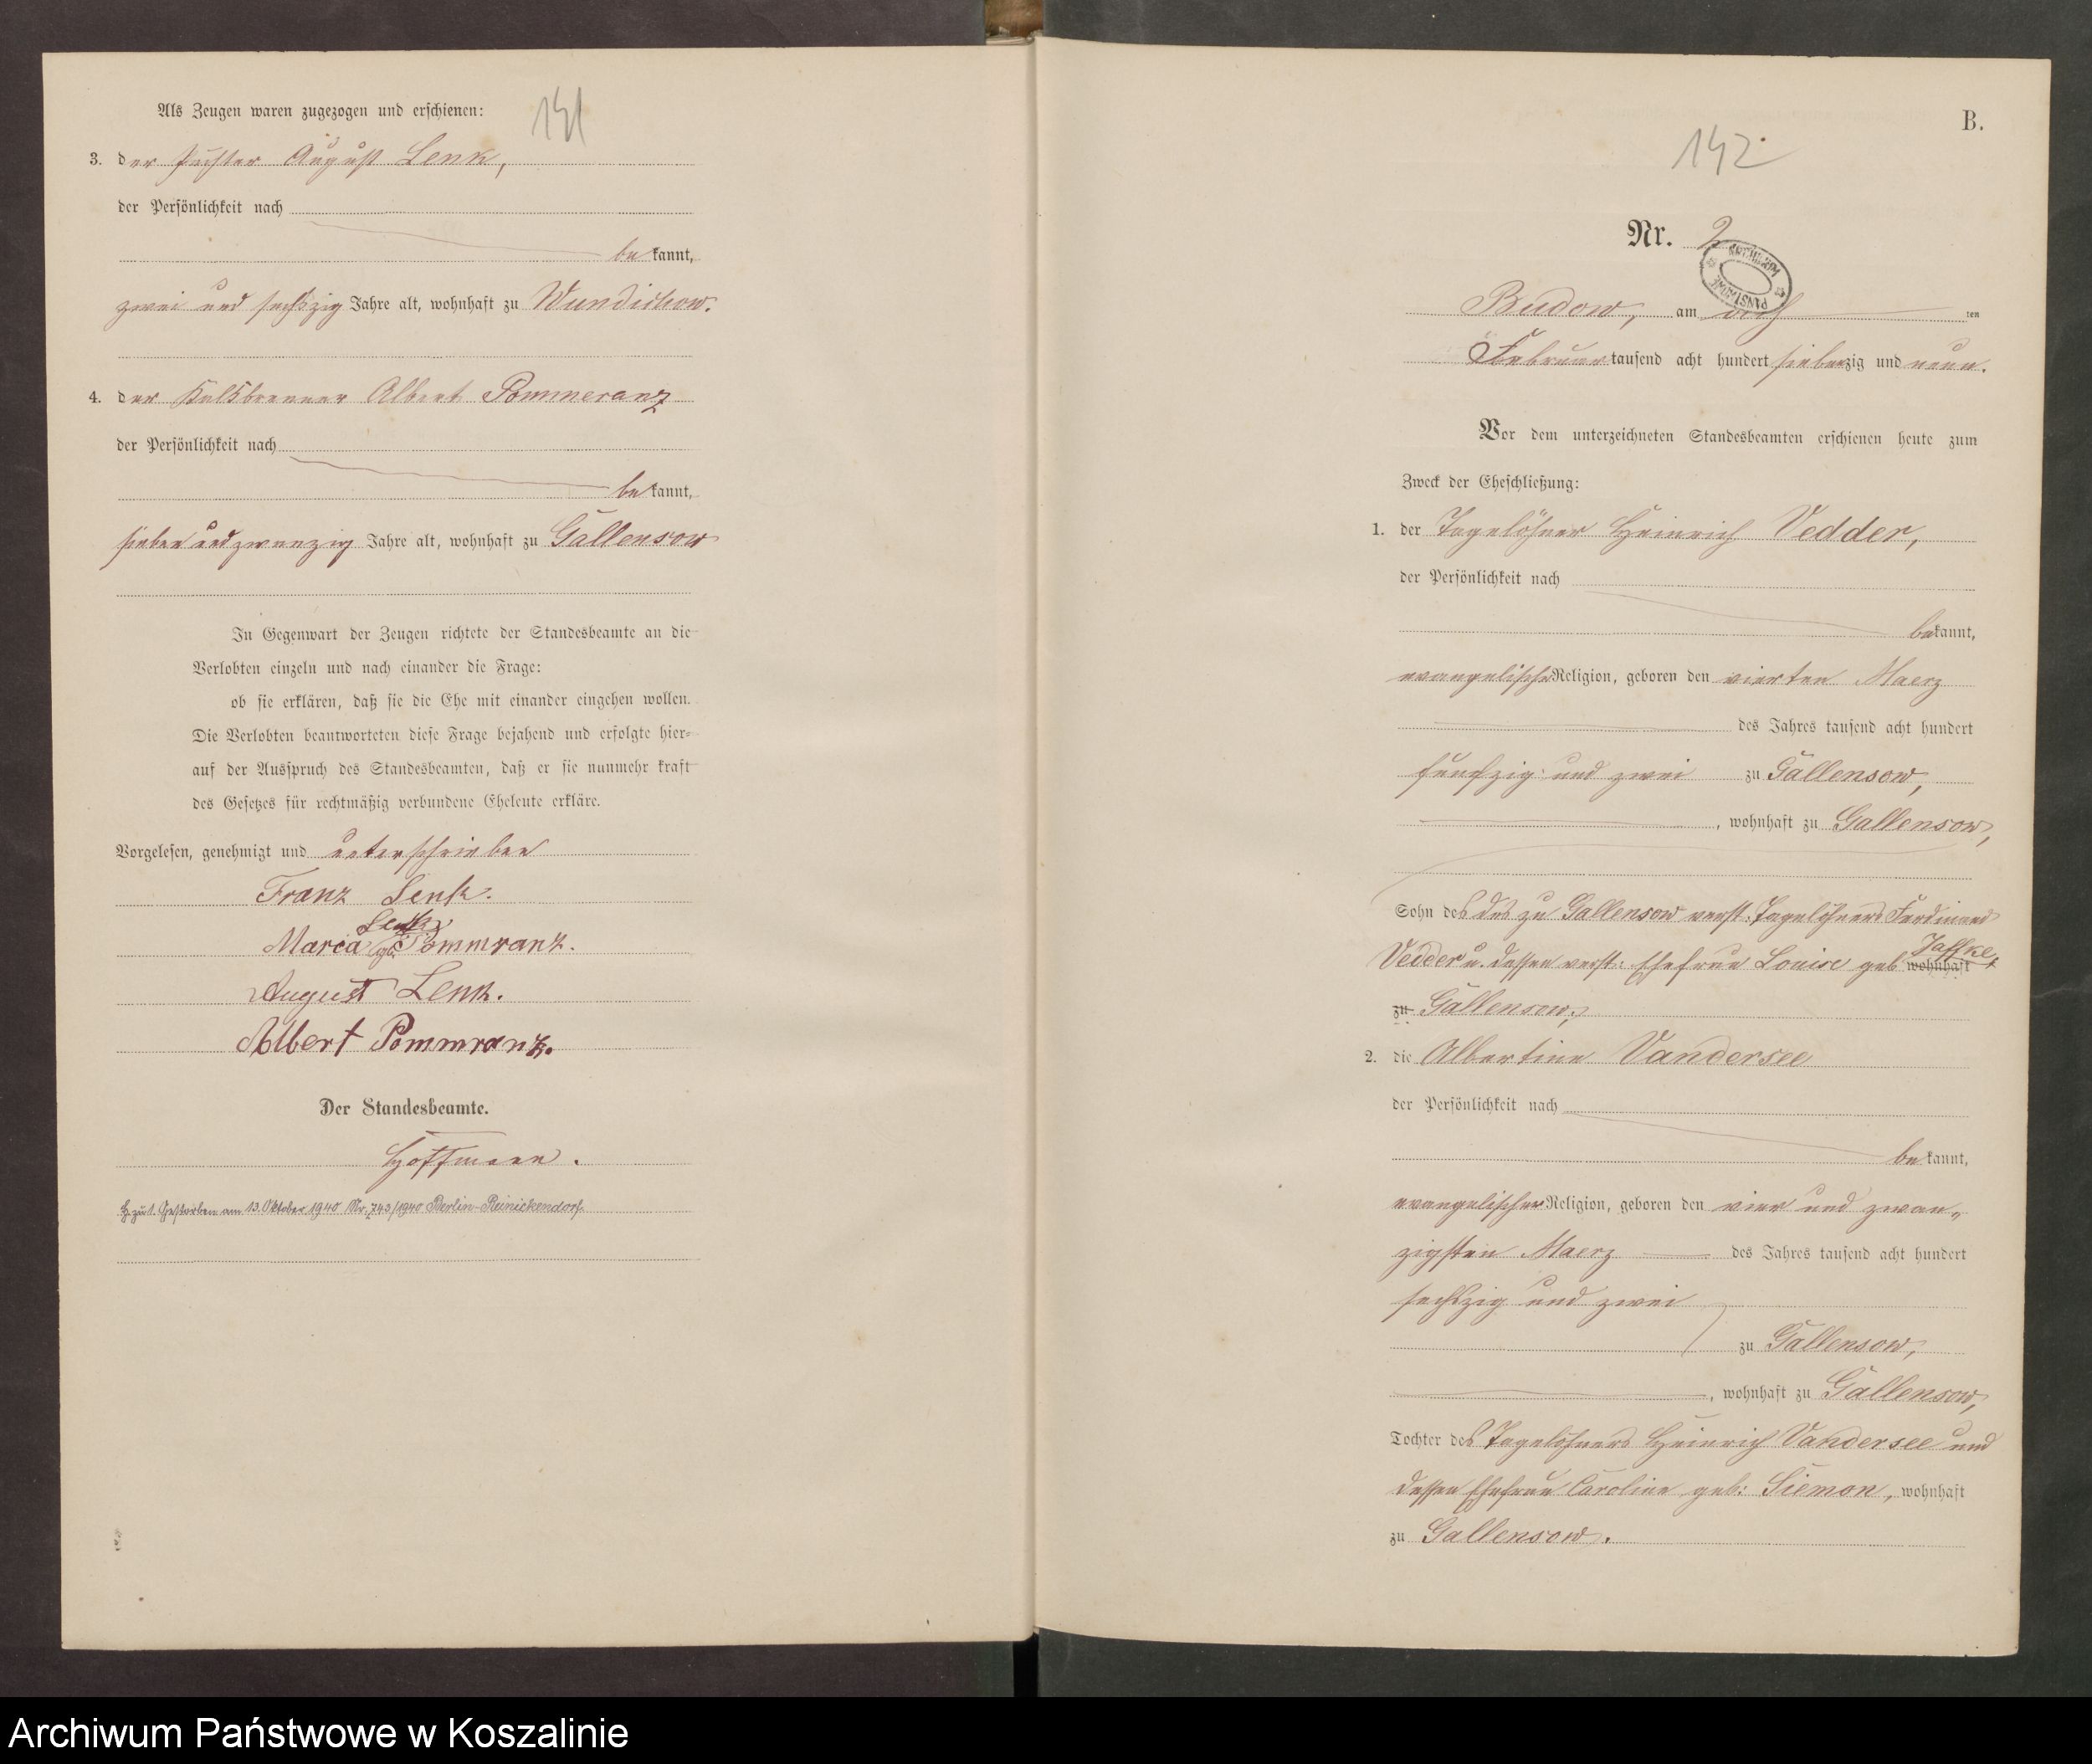 141
Als Zeugen waren zugezogen und erschienen:
3. der August Lenk,
der Persönlichkeit nach
bekannt,
zwei und sechszig Jahre alt, wohnhaft zu Wundichow.
4. der Kalkbrenner Albert Pommeranz
der Persönlichkeit nach
bekannt,
sieben und zwanzig Jahre alt, wohnhaft zu Gallensow
In Gegenwart der Zeugen richtete der Standesbeamte an die
Verlobten einzeln und nach einander die Frage:
ob sie erklären, daß sie die Ehe mit einander eingehen wollen.
Die Verlobten beantworteten diese Frage bejahend und erfolgte hier-
auf der Ausspruch des Standesbeamten, daß er sie nunmehr kraft
des Gesetzes für rechtmäßig verbundene Eheleute erkläre.
Vorgelesen, genehmigt und unterschrieben
Franz Lenk.
Lenk
Maria geb. Pommranz.
August Lenk.
Albert Pommranz.
Der Standesbeamte.
Hoffmann.
H. zu 1. Gestorben am 13. Oktober 1940 Nr. 743/1940 Berlin-Reinickendorf.
B.
142
Nr. 2
ARCHIWUM PAŃSTWOWE
Budow, am ten
Februar tausend acht hundert siebenzig und neun.
Vor dem unterzeichneten Standesbeamten erschienen heute zum
Zweck der Eheschließung:
1. der Tagelöhner Heinrich Vedder,
der Persönlichkeit nach
bekannt,
evangelischer Religion, geboren den vierten Maerz
des Jahres tausend acht hundert
fünfzig und zwei zu Gallensow,
, wohnhaft zu Gallensow,
Sohn des des zu Gallensow verst. Tagelöhners Ferdinand
Vedder u. dessen verst. Ehefrau Louise geb. Jaffke, wohnhaft
zu Gallensow,
2. die Albertine Vandersee
der Persönlichkeit nach
bekannt,
evangelischer Religion, geboren den vier und zwan-
zigsten Maerz des Jahres tausend acht hundert
sechszig und zwei
zu Gallensow,
, wohnhaft zu Gallensow,
Tochter des Tagelöhners Heinrich Vandersee und
dessen Ehefrau Caroline geb. Siemon, wohnhaft
zu Gallensow.
Archiwum Państwowe w Koszalinie